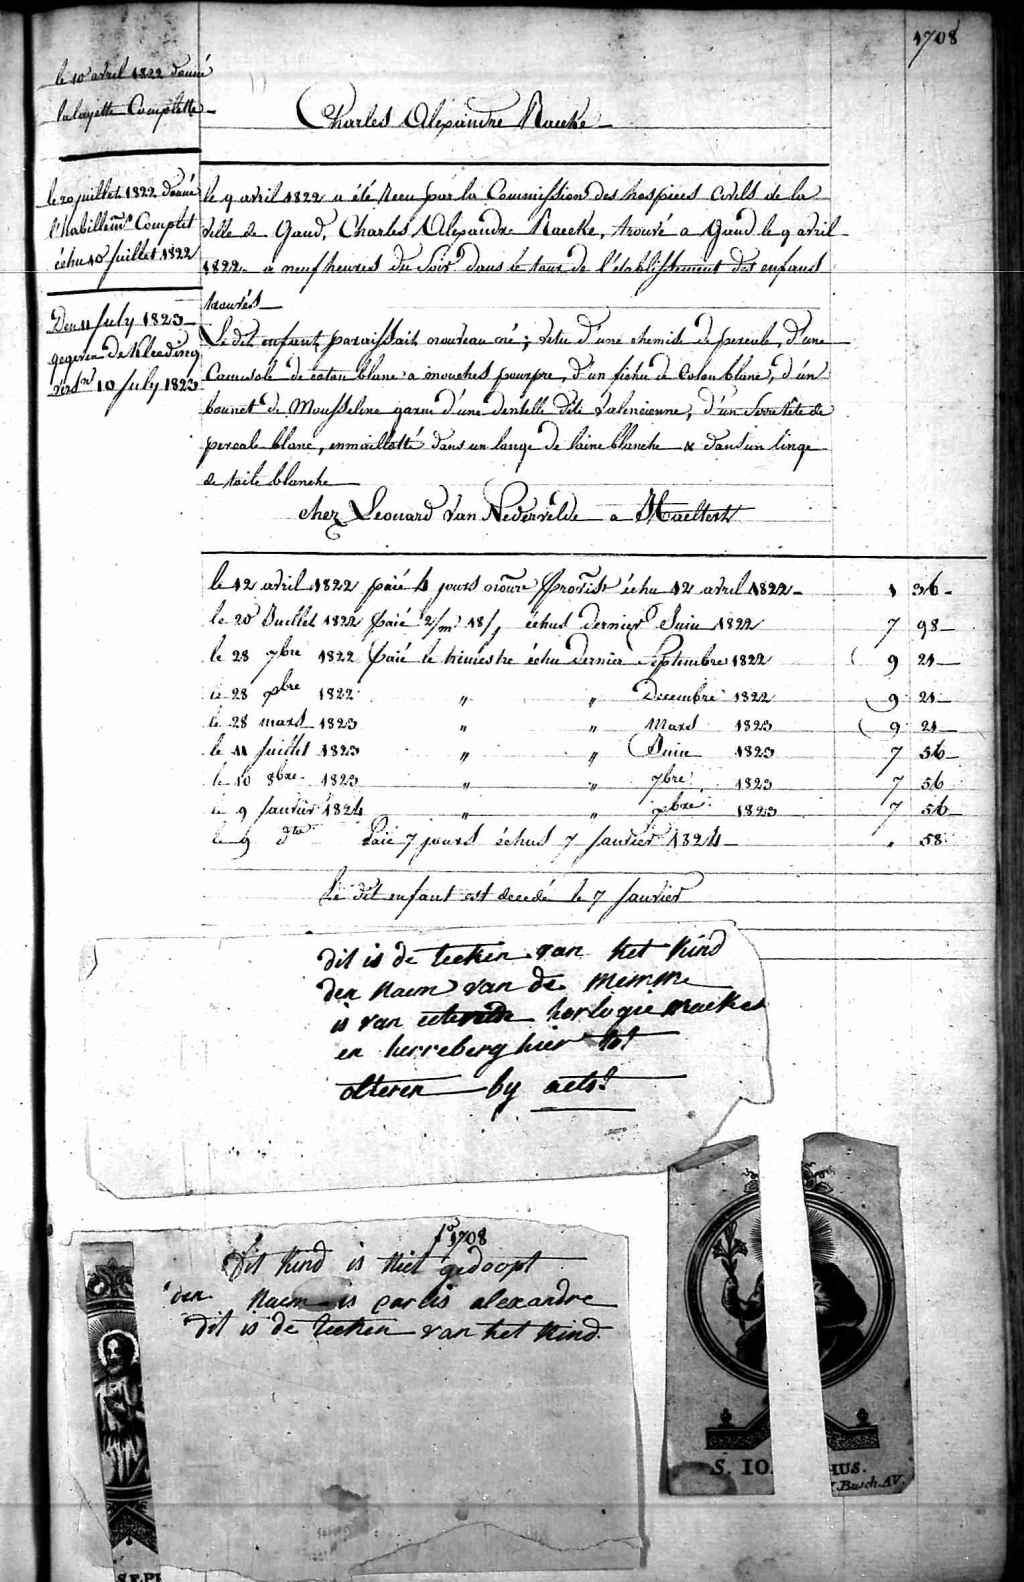 1708
le 10 avril 1822 donné
la layette Complette
Charles Alexandre Raeke
le 20 juillet 1822 donné
l'habillem.t Complet
échu 10 juillet 1822
Den 11 July 1823
gegeven De Kleeding
10 July 1823
le 9 avril 1822 a été Recu par la Commission des hospices Civils de la
ville de Gand, Charles Alexandre Raeke, trouvé a Gand le 9 avril
1822 a neuf heures du Soir dans le tour de l'établissement des enfans
trouvés
Le dit enfant paraissait nouveau né ; vetu d'une chemise de percale, d'une
Camisole de coton blanc a mouches pourpre, d'un fichu de Coton blanc, d'un
bonnet de Mousseline garni d'une dentelle dite Valencienne, d'un Serre tête de
percale blanc, enmaillotté dans un lange de laine blanche & dans un linge
de toile blanche
chez Leonard Van Nedervelde a Maeltert
le 12 avril 1822 païé 4 jours échu 12 avril 1822 1 36
le 20 Juillet 1822 païé 2/m 18/j échus dernier Juin 1822 7 98
le 28 7bre 1822 païé le trimestre échu dernier Septembre 1822 9 21
le 28 xbre 1822 " " Decembre 1822 9 21
le 28 mars 1823 " " Mars 1823 9 21
le 11 juillet 1823 " " Juin 1823 7 56
le 10 8bre 1823 " " 7bre 1823 7 56
le 9 janvier 1824 " " xbre 1823 7 56
le 9 dto Païé 7 jours échus 7 janvier 1824 " 58
Le dit enfant est decedé le 7 janvier
dit is de teeken van het kind
den naem van de memme
is van horlogie maeker
en herreberghier tot
olteren by aelst
fo 1708
Dit kind is niet gedoopt
den naem is carlis alexandre
dit is de teeken van het kind
S. IO HUS.
Busch. AV.
S.EPI